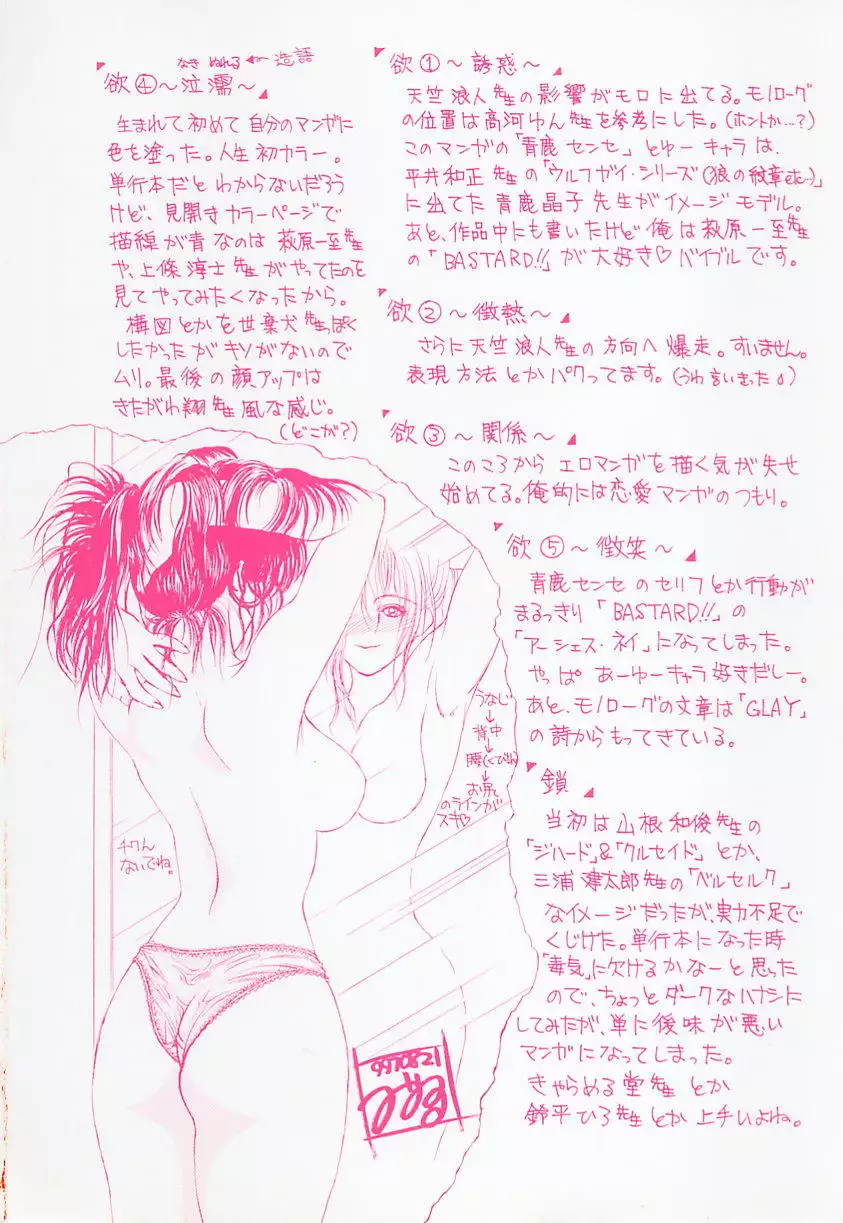 欲①～誘惑～
天竺浪人先生の影響がモロに出てる。モノローグ
の位置は高河ゆん先生を参考にした。(ホントか…?)
このマンガの「青鹿センセ」とゆーキャラは、
平井和正先生の「ウルフガイ・シリーズ(狼の紋章etc…)」
に出てた青鹿晶子先生がイメージモデル。
あと、作品中にも書いたけど俺は萩原一至先生
の「BASTARD!!」が大好き♡バイブルです。
欲②～微熱～
さらに天竺浪人先生の方向へ爆走。すいません。
表現方法とかパクってます。(うわ言いきった)
欲③～関係～
このころからエロマンガを描く気が失せ
始めてる。俺的には恋愛マンガのつもり。
なき ぬれる ← 造語
欲④～泣濡～
生まれて初めて自分のマンガに
色を塗った。人生初カラー。
単行本だとわからないだろう
けど、見開きカラーページで
描線が青なのは萩原一至先生
や、上條淳士先生がやってたのを
見てやってみたくなったから。
構図とかを世葉犬先生っぽく
したかったがキソがないので
ムリ。最後の顔アップは
きたがわ翔先生風な感じ。
(どこが?)
欲⑤～微笑～
青鹿センセのセリフとか行動が
まるっきり「BASTARD!!」の
「アーシェス・ネイ」になってしまった。
やっぱあーゆーキャラ好きだしー。
あと、モノローグの文章は「GLAY」
の詩からもってきている。
鎖
当初は山根和俊先生の
「ジハード」&「クルセイド」とか、
三浦建太郎先生の「ベルセルク」
なイメージだったが、実力不足で
くじけた。単行本になった時
「毒気」に欠けるかなーと思った
ので、ちょっとダークなハナシに
してみたが、単に後味が悪い
マンガになってしまった。
きゃらめる堂先生とか
鈴平ひろ先生とか上手いよね。
うなじ
↓
背中
↓
腰(くびれ)
↓
お尻
のラインが
スキ♡
チクん
ないでね。
970821